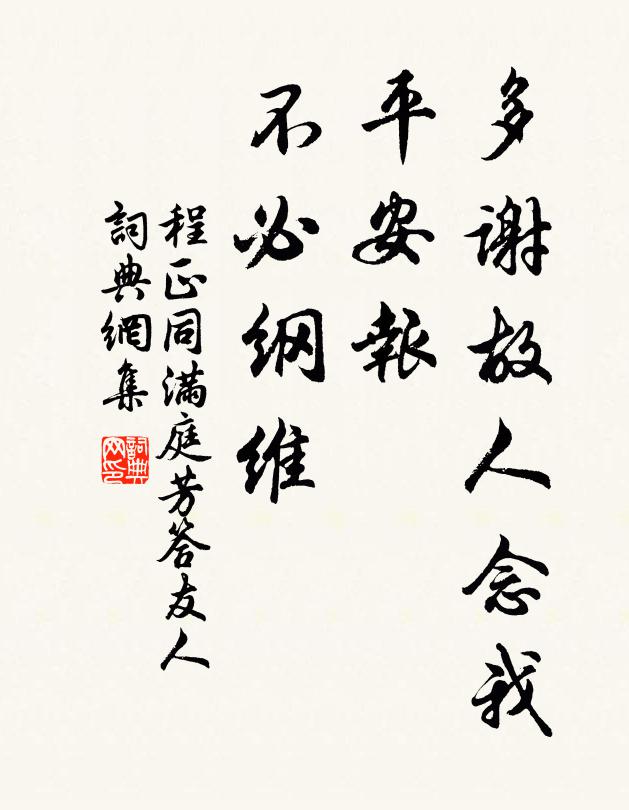 多谢故人念我
平安報
不必纲维
程正同满庭芳答友人
詞典網集
詞典网印